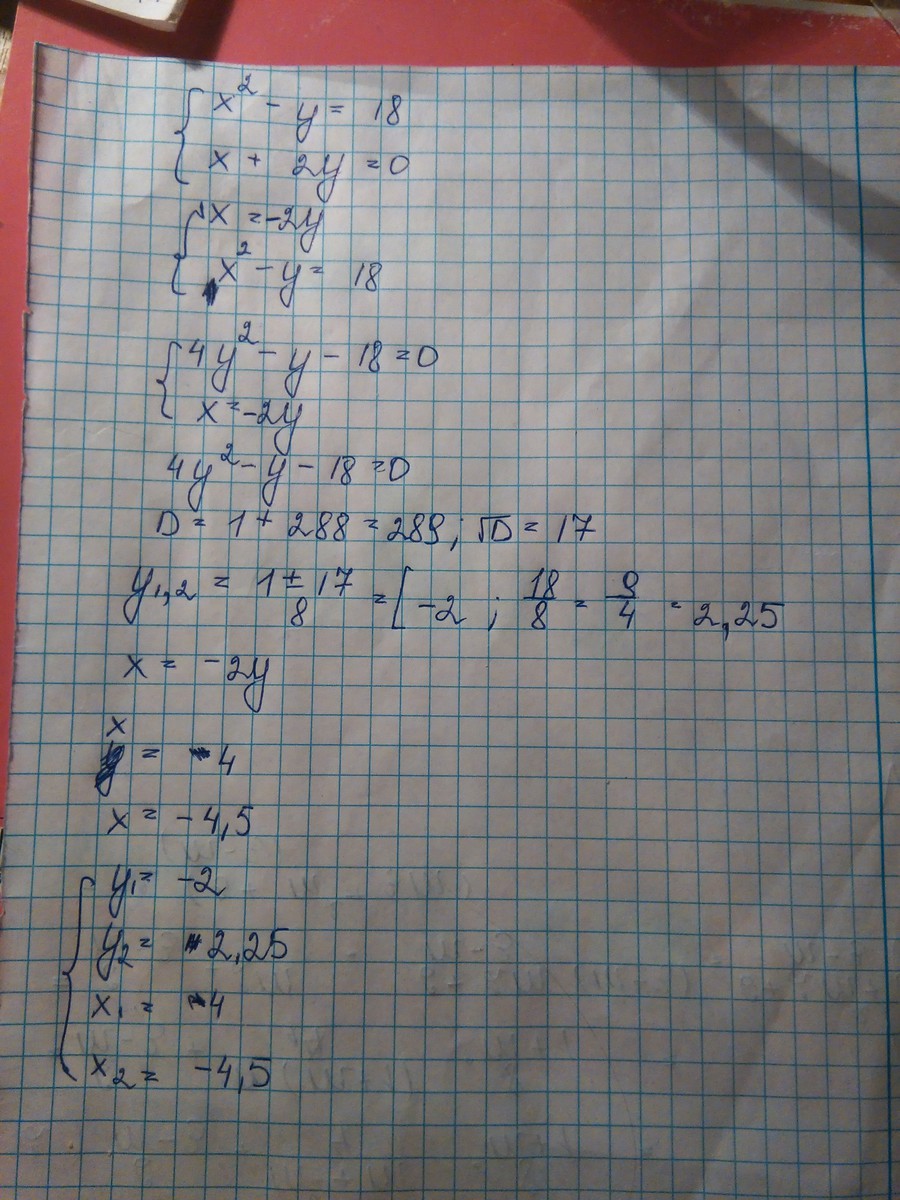 x² - y = 18
x + 2y = 0
x = -2y
x² - y = 18
4y² - y - 18 = 0
x = -2y
4y² - y - 18 = 0
D = 1 + 288 = 289; √D = 17
y₁,₂ = (1 ± 17)/8 = [ -2 ; 18/8 = 9/4 = 2,25
x = -2y
x = 4
x = -4,5
y₁ = -2
y₂ = 2,25
x₁ = 4
x₂ = -4,5